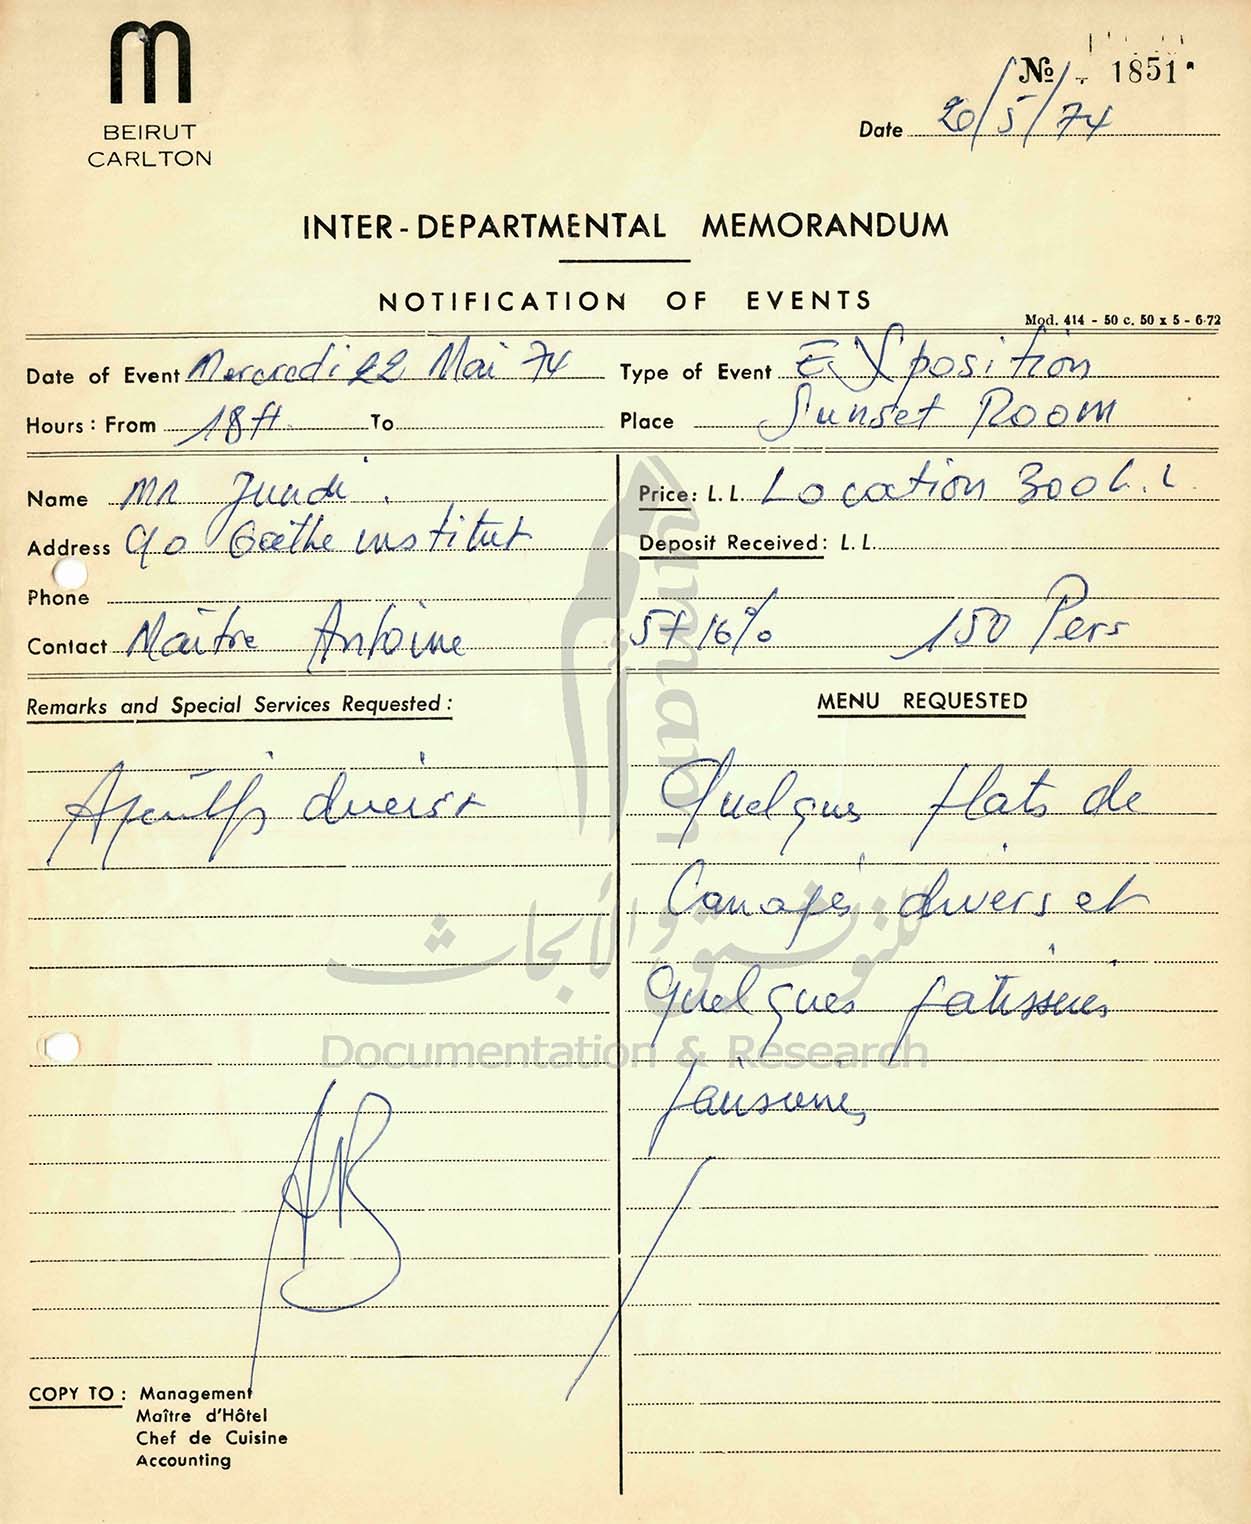 m
BEIRUT
CARLTON
No 1851
Date 20/5/74
INTER-DEPARTMENTAL MEMORANDUM
NOTIFICATION OF EVENTS
Mod. 414 - 50 c. 50 x 5 - 6-72
Date of Event Mercredi 22 Mai 74 Type of Event Exposition
Hours: From 18H To Place Sunset Room
Name Mr Jundi. Price: L. L. Location 300 L.L
Address c/o Gœthe institut Deposit Received: L. L.
Phone
Contact Maître Antoine 5+16% 150 Pers
Remarks and Special Services Requested: MENU REQUESTED
Aperitifs divers Quelques plats de
Canapés divers et
Quelques patisseries
AB
COPY TO: Management
Maître d'Hôtel
Chef de Cuisine
Accounting
Umam
للتوثيق والأبحاث
Documentation & Research